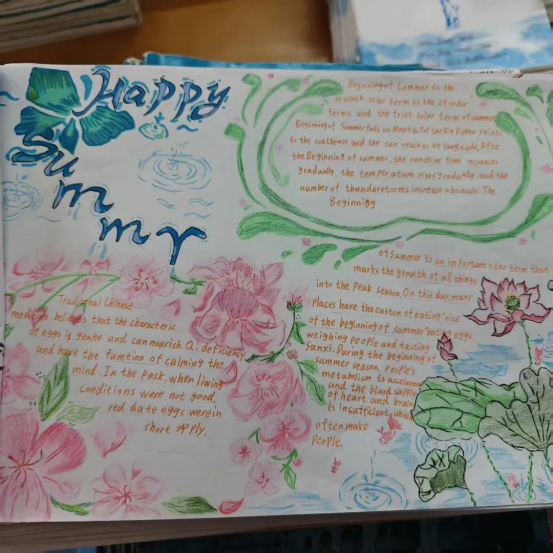 Happy
Summr
Beginning of Summer is the
seventh solar term in the 24 solar
terms and the first solar term of summer
Beginning of Summer falls on May 5-7
to the southeast and the sun reaches 45 longitude. After
the Beginning of summer, the sunshine time increases
gradually, the temperature rises gradually, and the
number of thunderstorms increases obviously. The
Beginning
of Summer is an important solar term that
marks the growth of all things
into the Peak season. On this day, many
Places have the custom of eating "rice
of the beginning of summer" eating eggs
weighing people and tasting
Sanxi. During the beginning of
summer season, people's
metabolism is accelerated
and the blood supply
of heart and brain
is insufficient, which
often make
People.
Traditional Chinese
medicine believes that the characteric
of eggs is gentle and can nourish. Qi deficiency
and have the function of calming the
mind. In the Pask, when living
conditions were not good,
red date eggs were in
short spply.